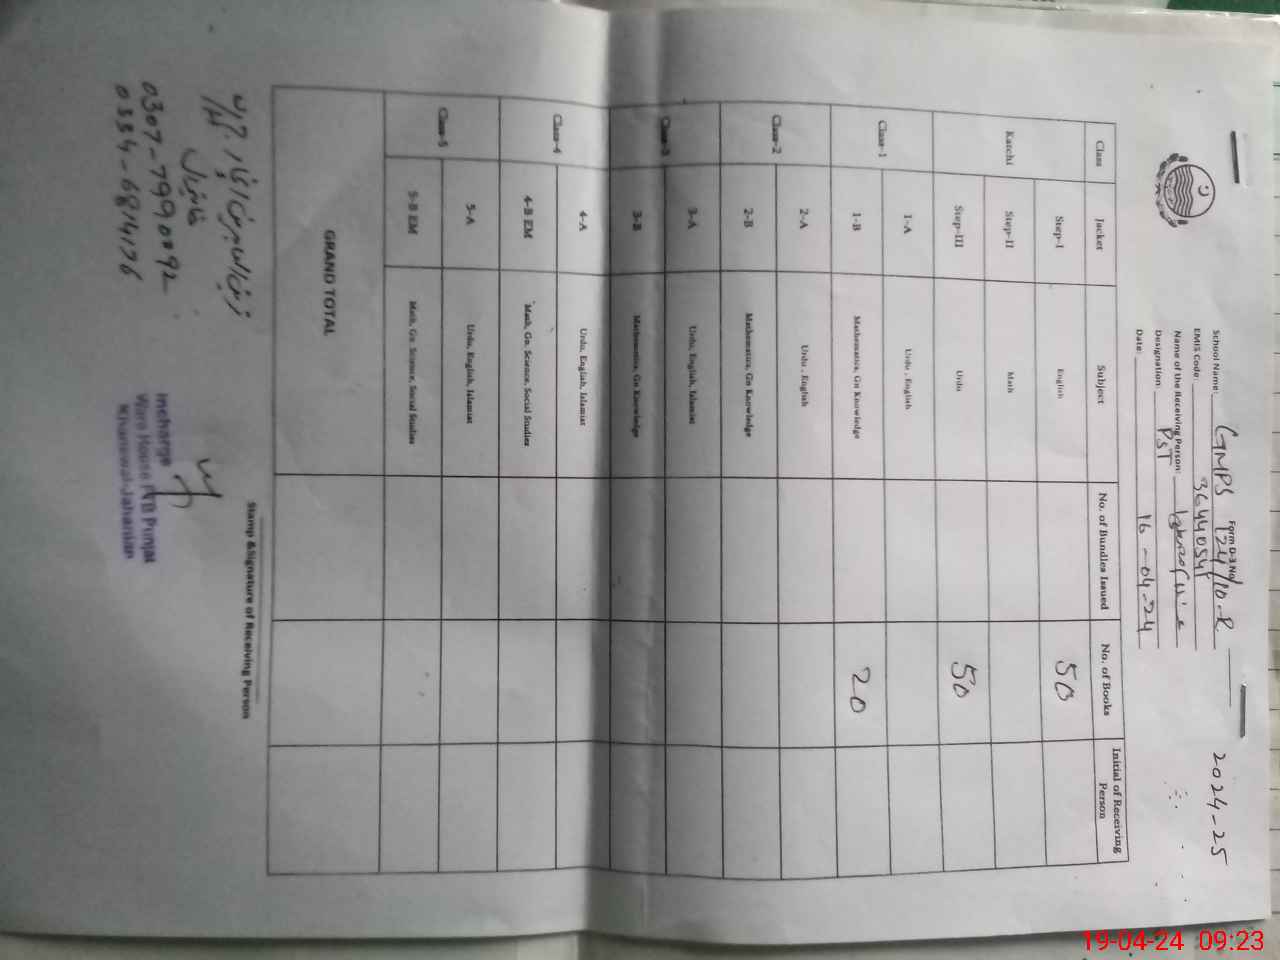 2024-25
Form D-3 No/
School Name: GMPS 124/10-R
EMIS Code: 36440541
Name of the Receiving Person:
Designation: PST
Date: 16-04-24
Class Jacket Subject No. of Bundles Issued No. of Books Initial of Receiving Person
Katchi Step-I English 50
Step-II Math
Step-III Urdu 50
Class-1 1-A Urdu , English
1-B Mathematics, Gn Knowledge 20
Class-2 2-A Urdu , English
2-B Mathematics, Gn Knowledge
Class-3 3-A Urdu, English, Islamiat
3-B Mathematics, Gn Knowledge
Class-4 4-A Urdu, English, Islamiat
4-B EM Math, Gn. Science, Social Studies
Class-5 5-A Urdu, English, Islamiat
5-B EM Math, Gn. Science, Social Studies
GRAND TOTAL
Stamp &Signature of Receiving Person
خانیوال
0307-7990092
0334-6814176
Incharge
Ware House PTB Punjab
Khanewal-Jahanian
19-04-24 09:23